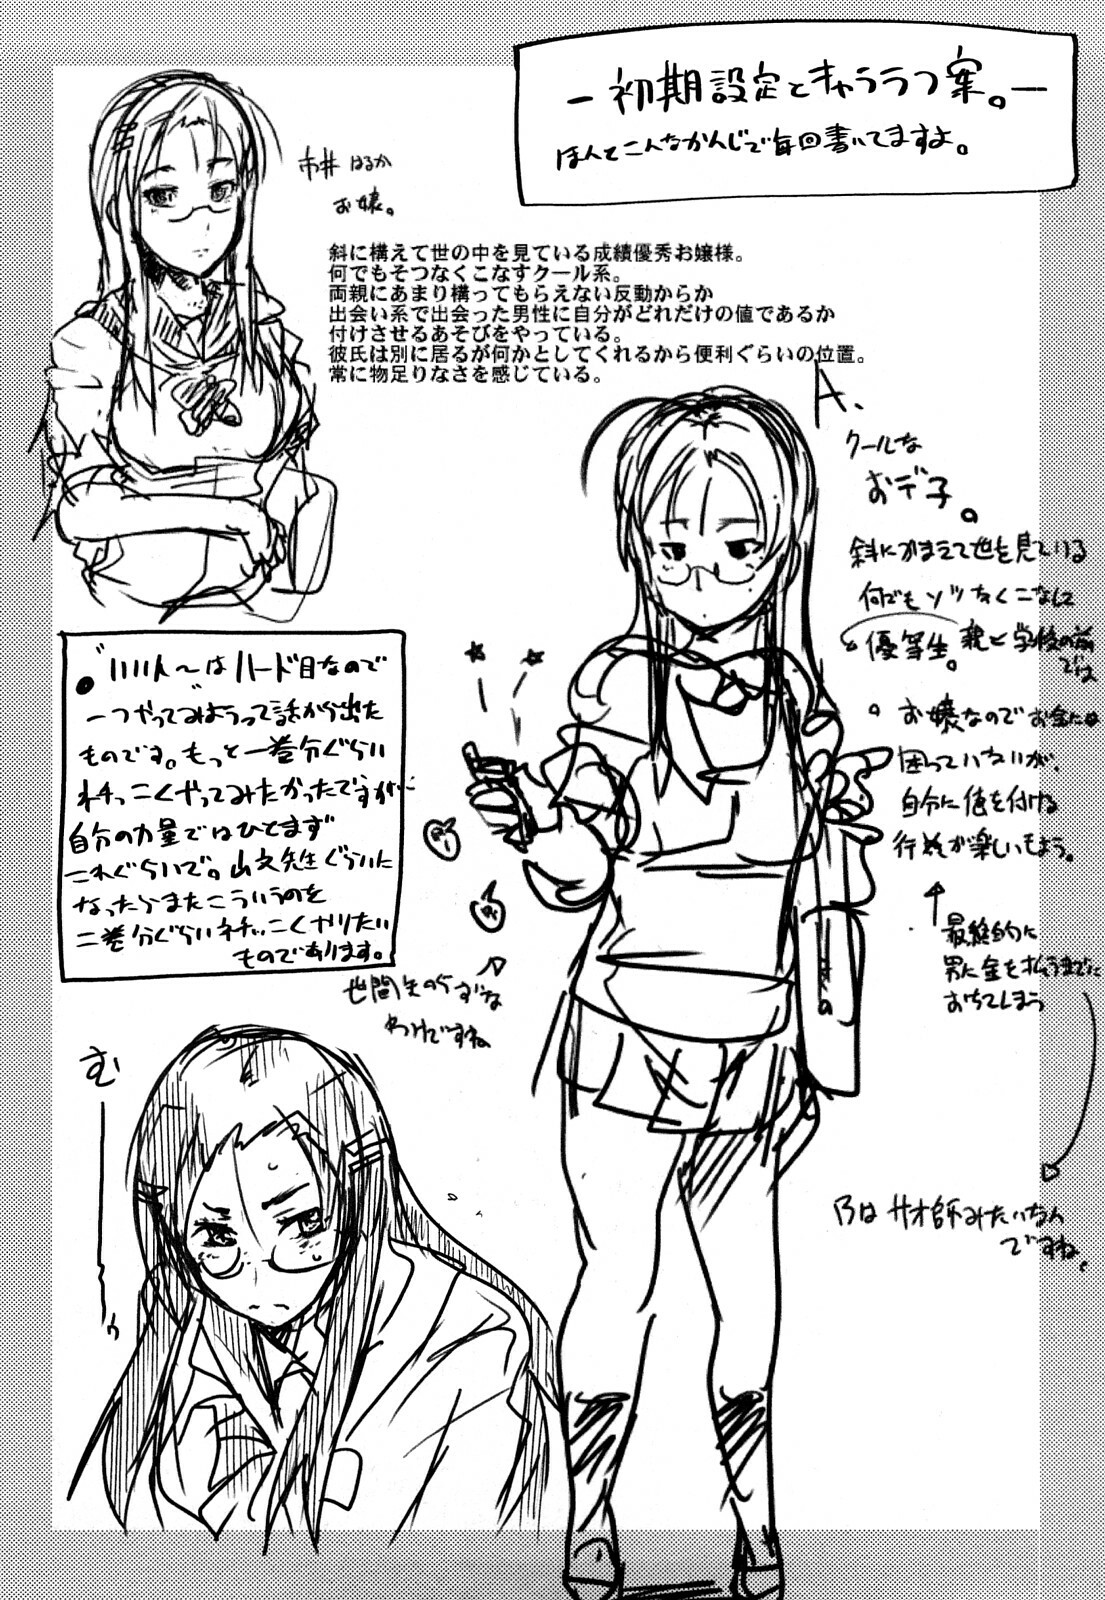 －初期設定とキャララフ案。－
ほんとこんなかんじで毎回書いてますよ。
市井 はるか
お嬢。
斜に構えて世の中を見ている成績優秀お嬢様。
何でもそつなくこなすクール系。
両親にあまり構ってもらえない反動からか
出会い系で出会った男性に自分がどれだけの値であるか
付けさせるあそびをやっている。
彼氏は別に居るが何かとしてくれるから便利ぐらいの位置。
常に物足りなさを感じている。
A.
クールな
おデ子。
斜にかまえて世を見ている
何でもソツなくこなして
優等生。親と学校の前
では
。お嬢なのでお金には
困っていないが、
自分に値を付ける
行為が楽しいもよう。
↑
最終的に
男に金を払うまでに
おちてしまう
Bは サオ師みたいなもん
ですね。
世間知らずな
わけですね
は ハード目なので
一つやってみようって話から出た
ものです。もっと一巻分ぐらい
ネチっこくやってみたかったですが
自分の力量ではひとまず
これぐらいで。山文先生ぐらいに
なったらまたこういうのを
二巻分ぐらいネチっこくやりたい
ものであります。
む